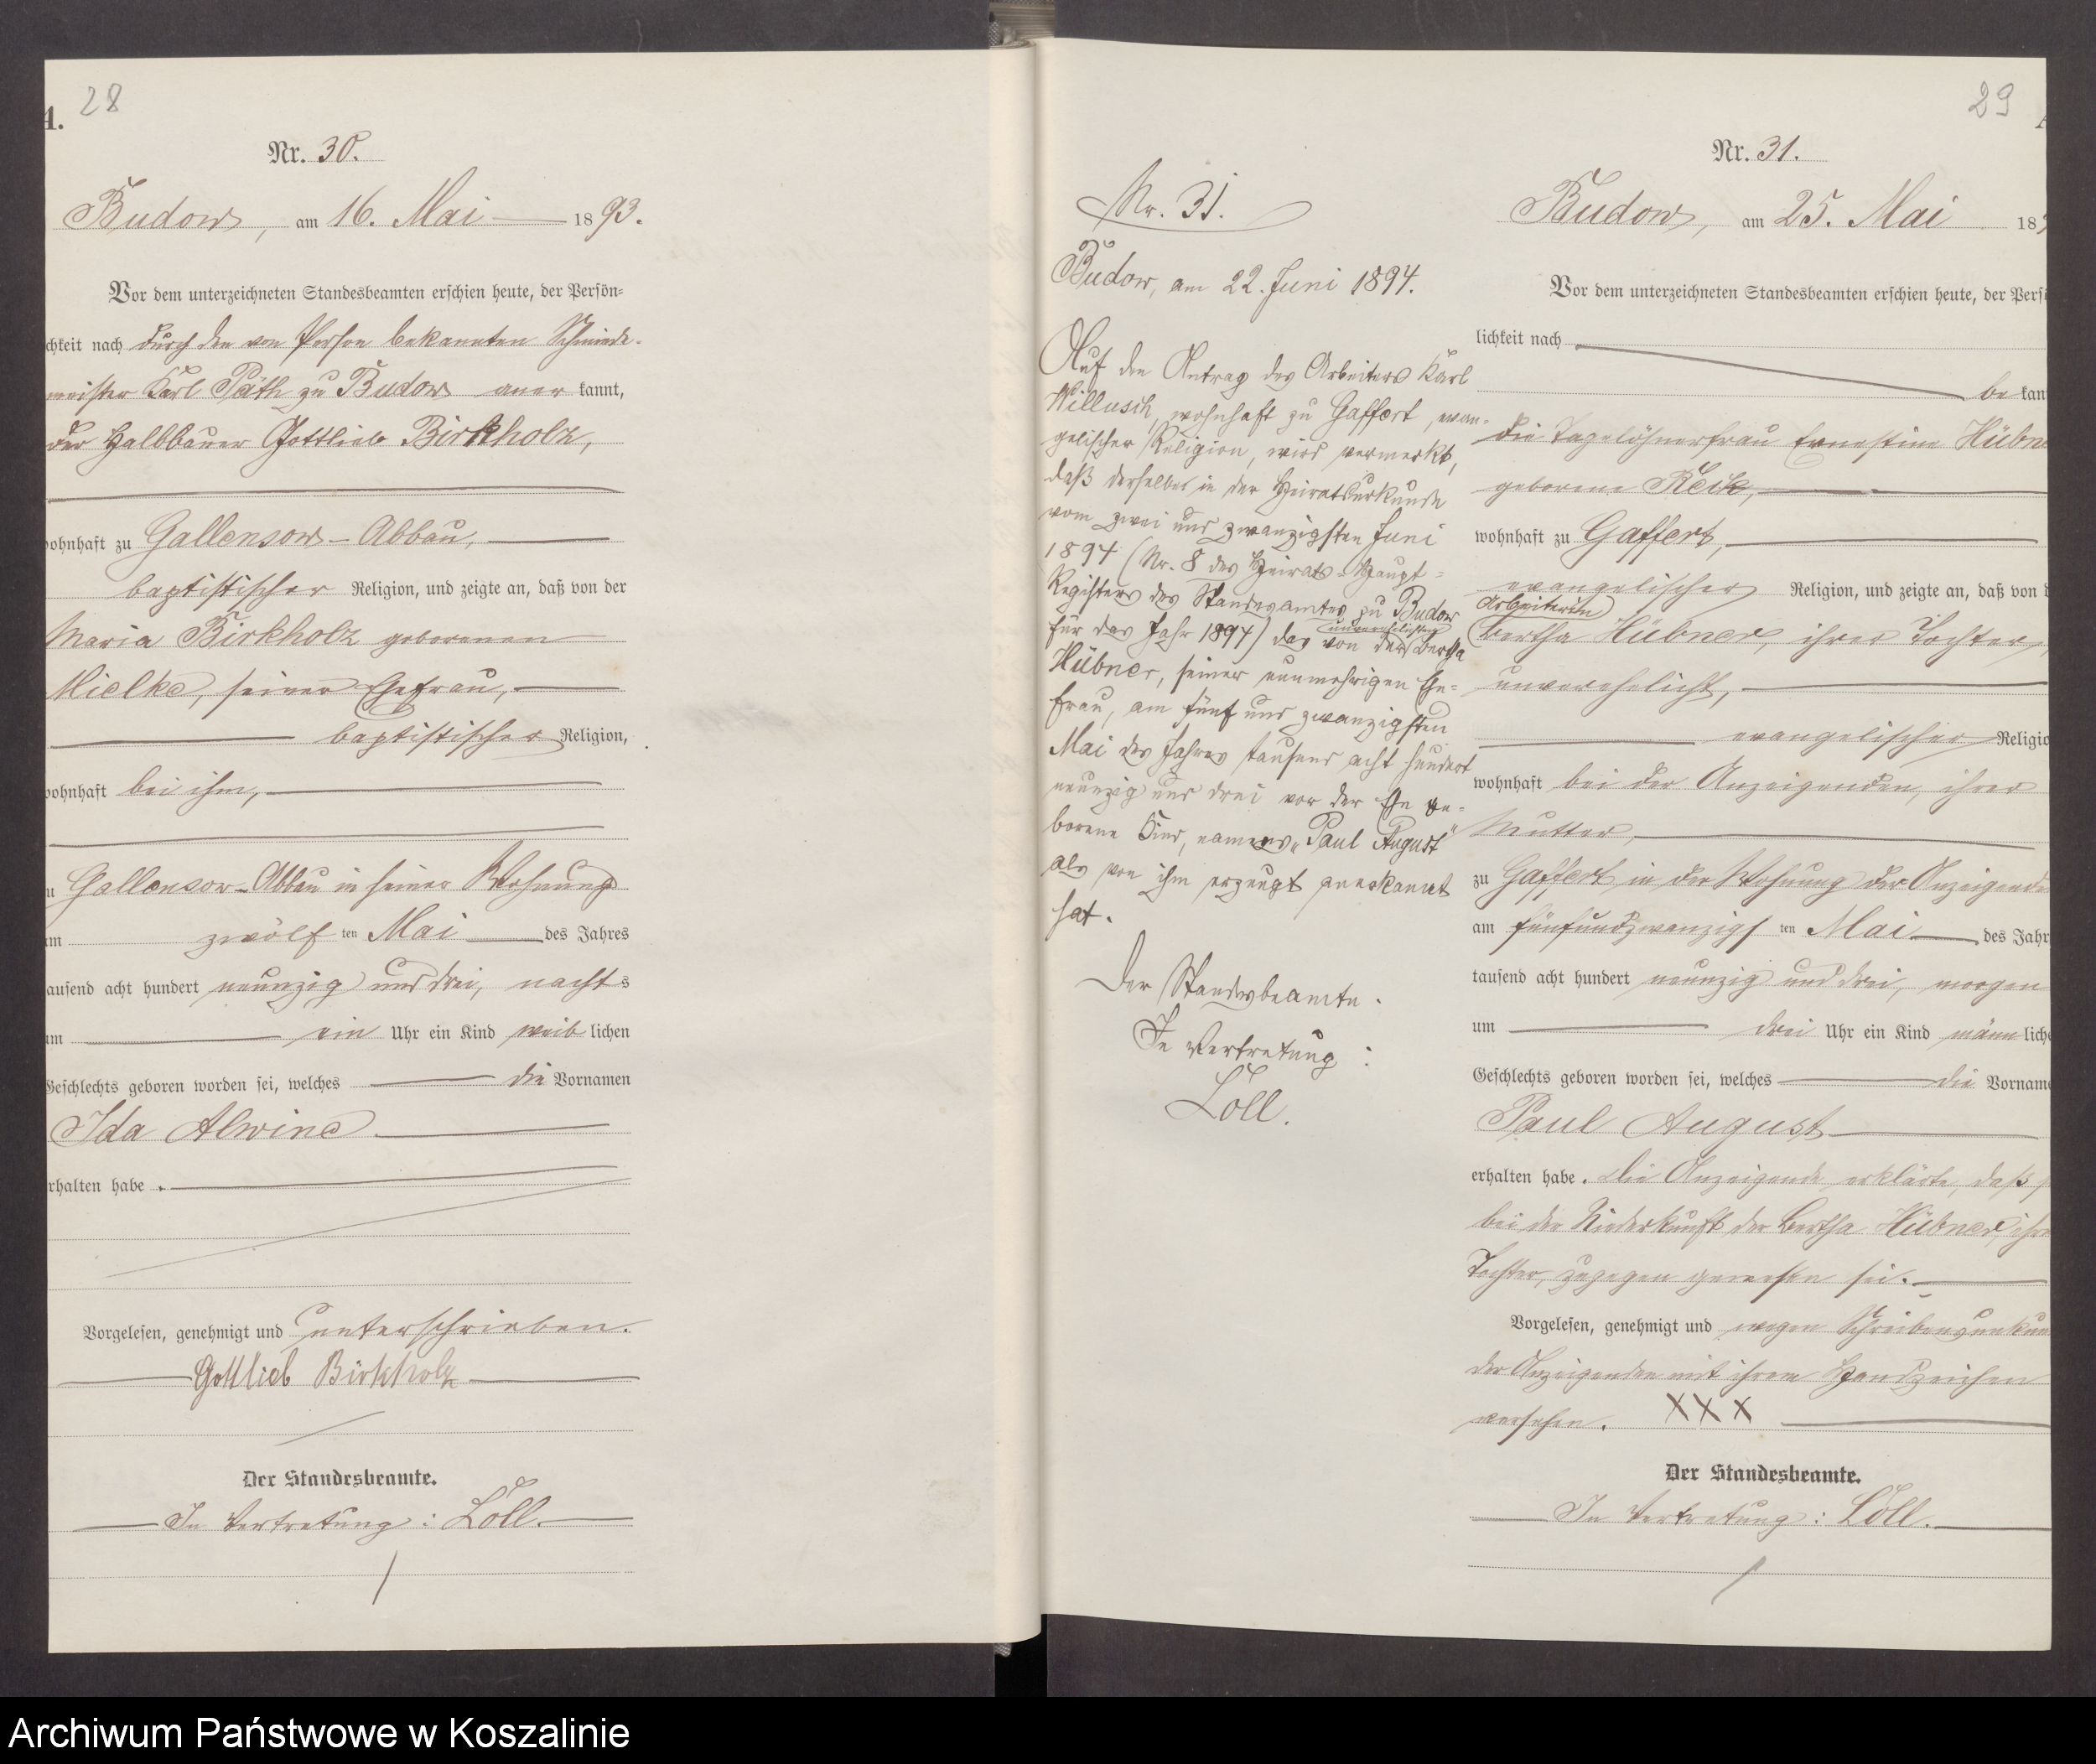 28
A.
Nr. 30.
Budow, am 16. Mai 1893.
Vor dem unterzeichneten Standesbeamten erschien heute, der Persön=
chkeit nach durch den von Person bekannten Schmiede-
meister Karl Päth zu Budow aner kannt,
der Halbbauer Gottlieb Birkholz,
wohnhaft zu Gallensow-Abbau,
baptistischer Religion, und zeigte an, daß von der
Maria Birkholz geborenen
Mielke, seiner Ehefrau,
baptistischer Religion,
wohnhaft bei ihm,
u Gallensow-Abbau in seiner Wohnung
am zwölf ten Mai des Jahres
ausend acht hundert neunzig und drei, nachts
um ein Uhr ein Kind weib lichen
Geschlechts geboren worden sei, welches die Vornamen
Ida Alwine
rhalten habe.
Vorgelesen, genehmigt und unterschrieben.
Gottlieb Birkholz
Der Standesbeamte.
In Vertretung: Löll.
Nr. 31.
Budow, am 22. Juni 1894.
Auf den Antrag des Arbeiters Karl
Willusch, wohnhaft zu Gaffert, evan-
gelischer Religion, wird vermerkt,
daß derselbe in der Heiratsurkunde
vom zwei und zwanzigsten Juni
1894 (Nr. 8 des Heirats-Haupt-
Registers des Standesamtes zu Budow
für das Jahr 1894) das von der unverehelichten Bertha
Hübner, seiner nunmehrigen Ehe-
frau, am fünf und zwanzigsten
Mai des Jahres tausend acht hundert
neunzig und drei vor der Ehe ge-
borene Kind, namens „Paul August“
als von ihm erzeugt anerkannt
hat.
Der Standesbeamte.
In Vertretung:
Löll.
29
Nr. 31.
Budow, am 25. Mai 189
Vor dem unterzeichneten Standesbeamten erschien heute, der Persö
lichkeit nach
be kan
die Tagelöhnerfrau Ernestine Hübne
geborene Reik,
wohnhaft zu Gaffert,
evangelischer Religion, und zeigte an, daß von d
Arbeiterin
Bertha Hübner, ihrer Tochter,
unverehelicht,
evangelischer Religio
wohnhaft bei der Anzeigenden, ihrer
Mutter,
zu Gaffert in der Wohnung der Anzeigende
am fünfundzwanzigs ten Mai des Jahr
tausend acht hundert neunzig und drei, morgen
um drei Uhr ein Kind männ liche
Geschlechts geboren worden sei, welches die Vorname
Paul August
erhalten habe. Die Anzeigende erklärte, daß s
bei der Niederkunft der Bertha Hübner, ihre
Tochter, zugegen gewesen sei.
Vorgelesen, genehmigt und wegen Schreibensunkun
der Anzeigenden mit ihrem Handzeichen
versehen. XXX
Der Standesbeamte.
In Vertretung: Löll.
Archiwum Państwowe w Koszalinie